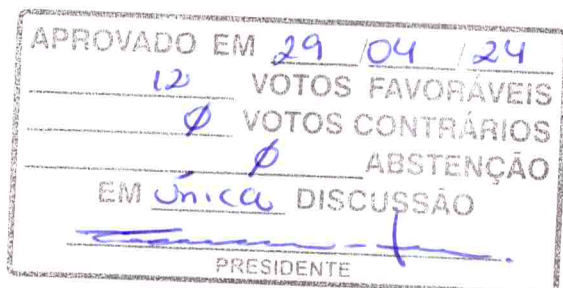 APROVADO EM 29 / 04 / 24
12 VOTOS FAVORÁVEIS
Ø VOTOS CONTRÁRIOS
Ø ABSTENÇÃO
EM única DISCUSSÃO
PRESIDENTE